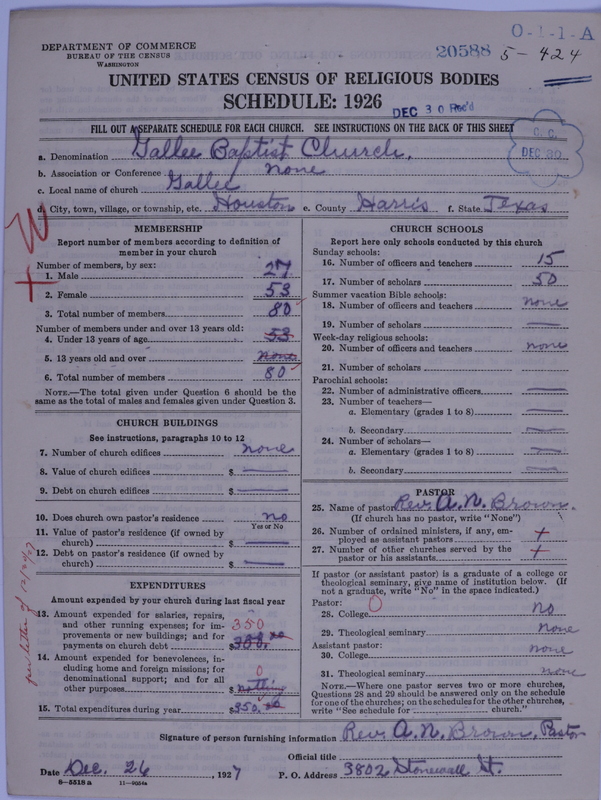 O-1-1-A
DEPARTMENT OF COMMERCE
BUREAU OF THE CENSUS
WASHINGTON
20588
5-424
UNITED STATES CENSUS OF RELIGIOUS BODIES
SCHEDULE: 1926
DEC 30 Rec'd
FILL OUT A SEPARATE SCHEDULE FOR EACH CHURCH. SEE INSTRUCTIONS ON THE BACK OF THIS SHEET
C. C.
DEC 30
a. Denomination Gallee Baptist Church.
b. Association or Conference none
c. Local name of church Gallee
d. City, town, village, or township, etc. Houston e. County Harris f. State Texas
W
+
MEMBERSHIP
Report number of members according to definition of
member in your church
Number of members, by sex:
1. Male 27
2. Female 53
3. Total number of members 80
Number of members under and over 13 years old:
4. Under 13 years of age 53
5. 13 years old and over none
6. Total number of members 80
NOTE.—The total given under Question 6 should be the
same as the total of males and females given under Question 3.
CHURCH BUILDINGS
See instructions, paragraphs 10 to 12
7. Number of church edifices none
8. Value of church edifices $ —
9. Debt on church edifices $ —
10. Does church own pastor's residence no
Yes or No
11. Value of pastor's residence (if owned by
church) $ —
12. Debt on pastor's residence (if owned by
church) $ —
EXPENDITURES
Amount expended by your church during last fiscal year
13. Amount expended for salaries, repairs,
and other running expenses; for im- 350
provements or new buildings; and for
payments on church debt $
14. Amount expended for benevolences, in-
cluding home and foreign missions; for 0
denominational support; and for all
other purposes $ nothing
15. Total expenditures during year $350.00
per letter of 12/24/27
CHURCH SCHOOLS
Report here only schools conducted by this church
Sunday schools:
16. Number of officers and teachers 15
17. Number of scholars 50
Summer vacation Bible schools:
18. Number of officers and teachers none
19. Number of scholars —
Week-day religious schools:
20. Number of officers and teachers none
21. Number of scholars —
Parochial schools:
22. Number of administrative officers —
23. Number of teachers—
a. Elementary (grades 1 to 8) —
b. Secondary —
24. Number of scholars—
a. Elementary (grades 1 to 8) —
b. Secondary —
PASTOR
25. Name of pastor Rev. A. N. Brown.
(If church has no pastor, write "None")
26. Number of ordained ministers, if any, em-
ployed as assistant pastors +
27. Number of other churches served by the
pastor or his assistants +
If pastor (or assistant pastor) is a graduate of a college or
theological seminary, give name of institution below. (If
not a graduate, write "No" in the space indicated.)
Pastor: 0
28. College no
29. Theological seminary none
Assistant pastor:
30. College none
31. Theological seminary none
NOTE.—Where one pastor serves two or more churches,
Questions 28 and 29 should be answered only on the schedule
for one of the churches; on the schedules for the other churches,
write "See schedule for church."
Signature of person furnishing information Rev. A. N. Brown, Pastor
Official title
Date Dec. 26, 1927 P. O. Address 3802 Stonewall St.
8-5518a 11-9054a